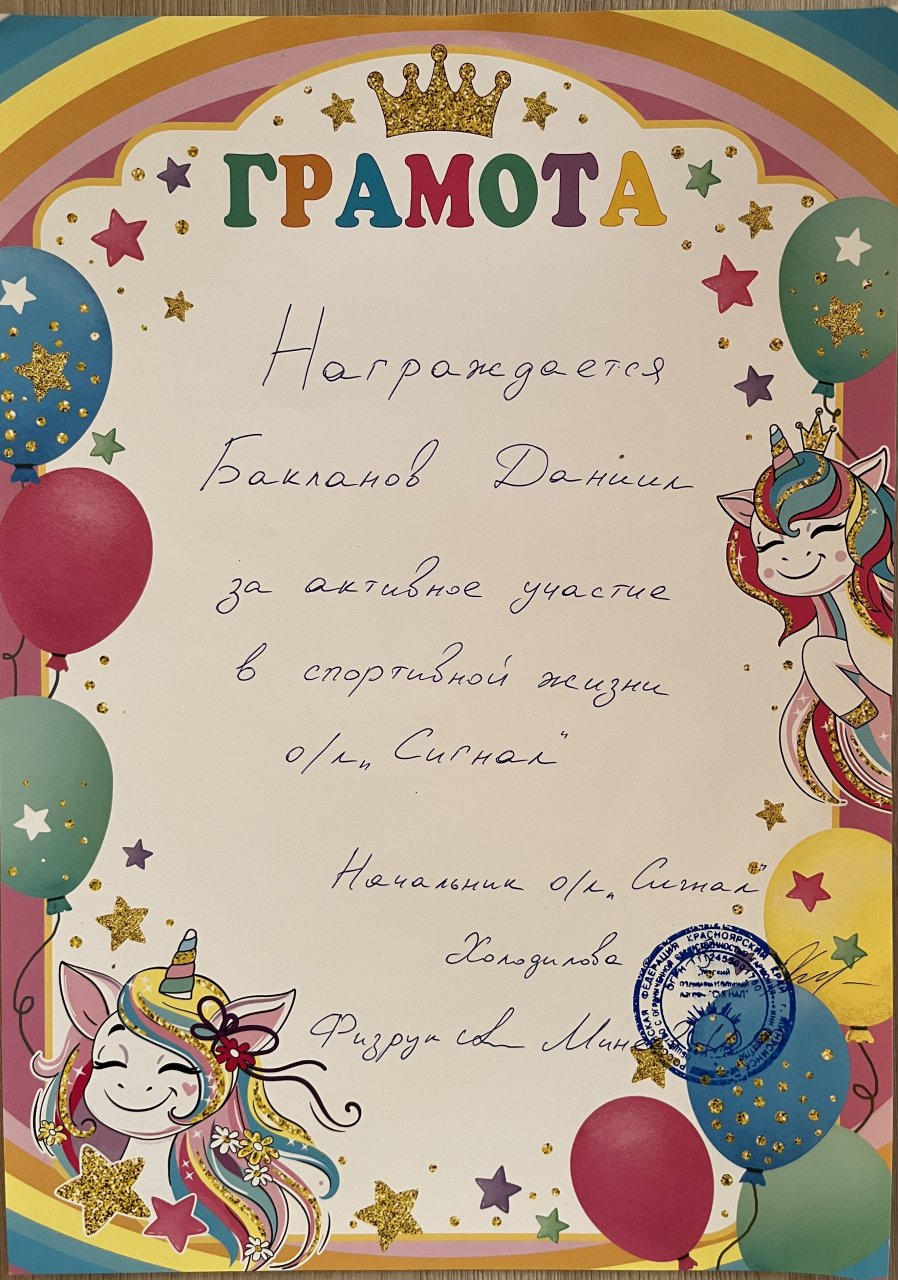 ГРАМОТА
Награждается
Бакланов Даниил
за активное участие
в спортивной жизни
о/л „Сигнал"
Начальник о/л „Сигнал"
Холодилова
Физрук
РОССИЙСКАЯ ФЕДЕРАЦИЯ КРАСНОЯРСКИЙ КРАЙ
"СИГНАЛ"